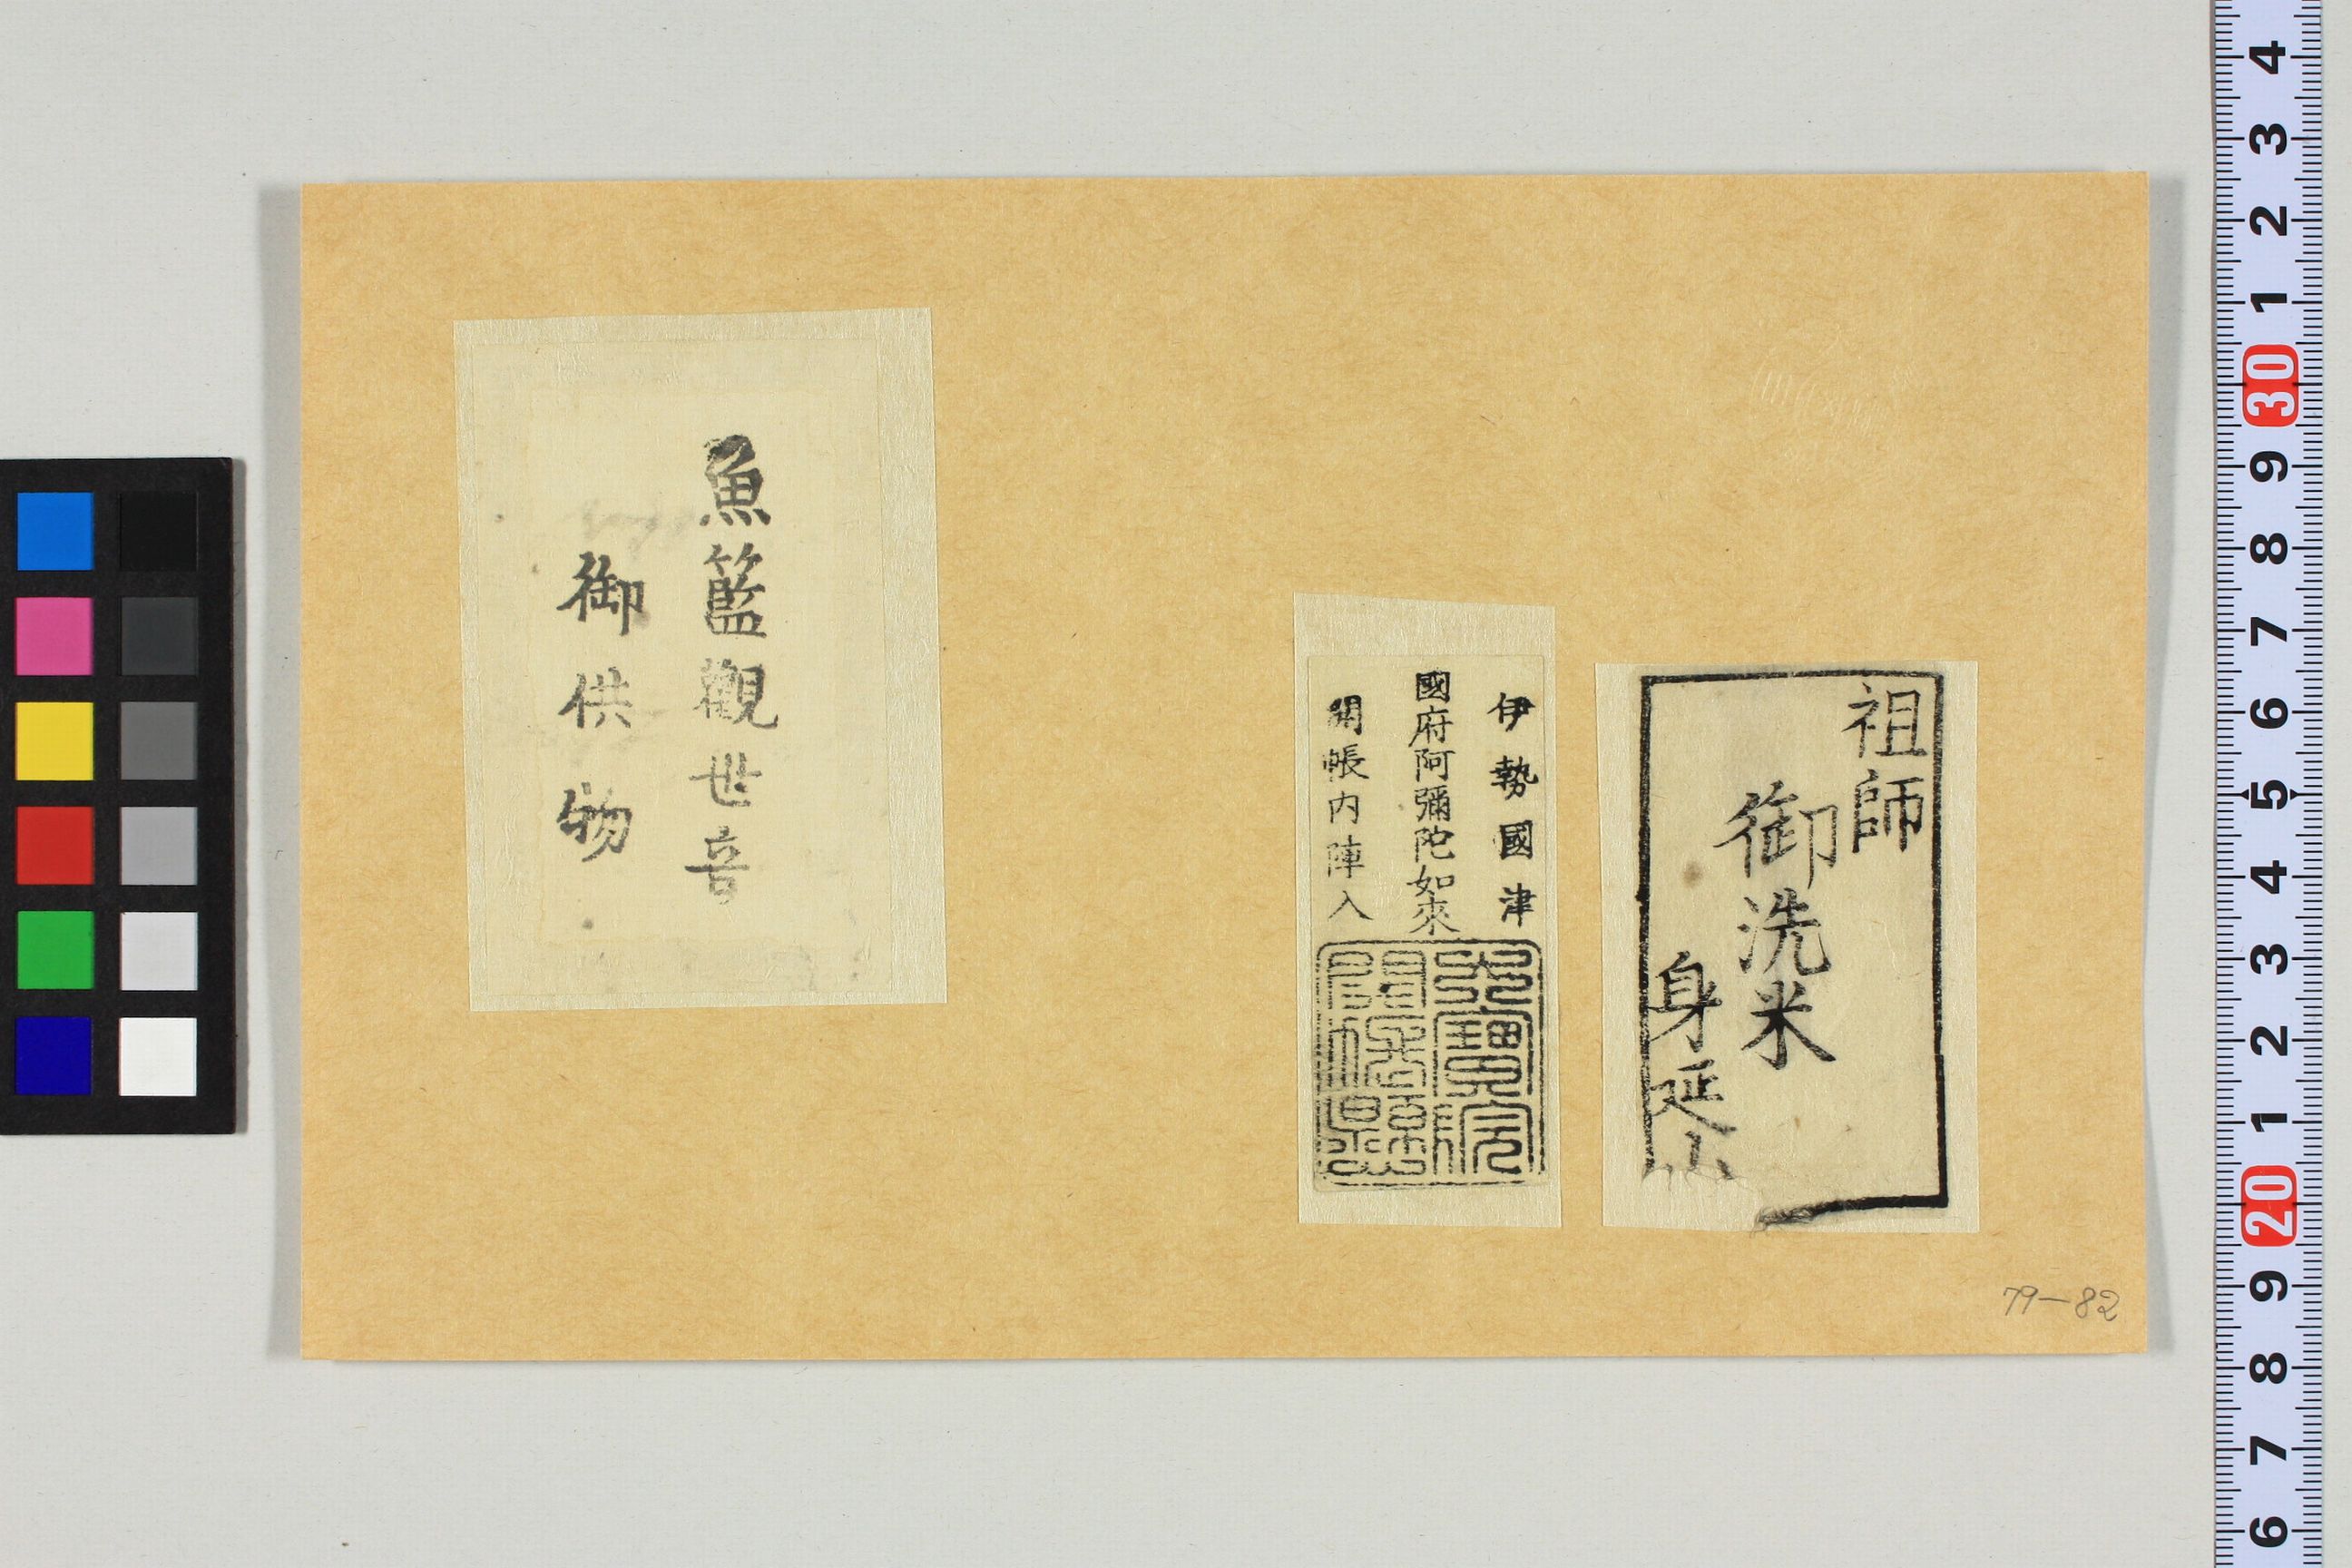 祖師
御洗米
身延山
伊勢國津
國府阿彌陀如來
開帳内陣入
魚籃觀世音
御供物
79-82
4
3
2
1
30
9
8
7
6
5
4
3
2
1
20
9
8
7
6